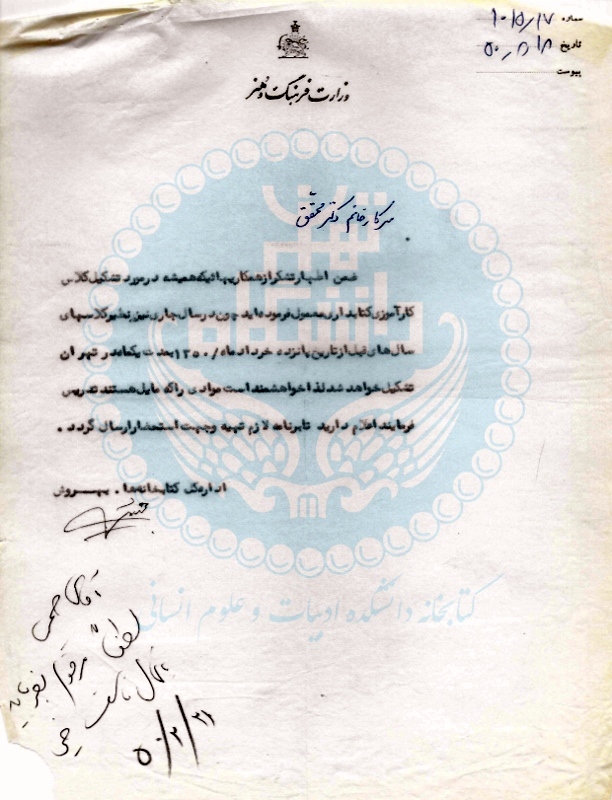 شماره ۱۰۱۵/۱۷
تاریخ ۵۰/۲/۱۸
پیوست
وزارت فرهنگ و هنر
سرکار خانم دکتر محقق
ضمن اظهار تشکر از همکاریهائیکه همیشه در مورد تشکیل کلاس
کارآموزی کتابداری معمول فرموده‌اید چون در سال جاری نیز نظیر کلاسهای
سال‌های قبل از تاریخ پانزده خرداد ماه /۱۳۵۰ بمدت یکماه در تهران
تشکیل خواهد شد لذا خواهشمند است موادی را که مایل هستند تدریس
فرمایند اعلام دارید تا برنامه لازم تهیه و جهت استحضار ارسال گردد .
اداره کل کتابخانه‌ها . بهروش
آقای
لطفاً مرقوم بفرمائید
۵۰/۲/۲۱
دانشگاه تهران
کتابخانه دانشکده ادبیات و علوم انسانی